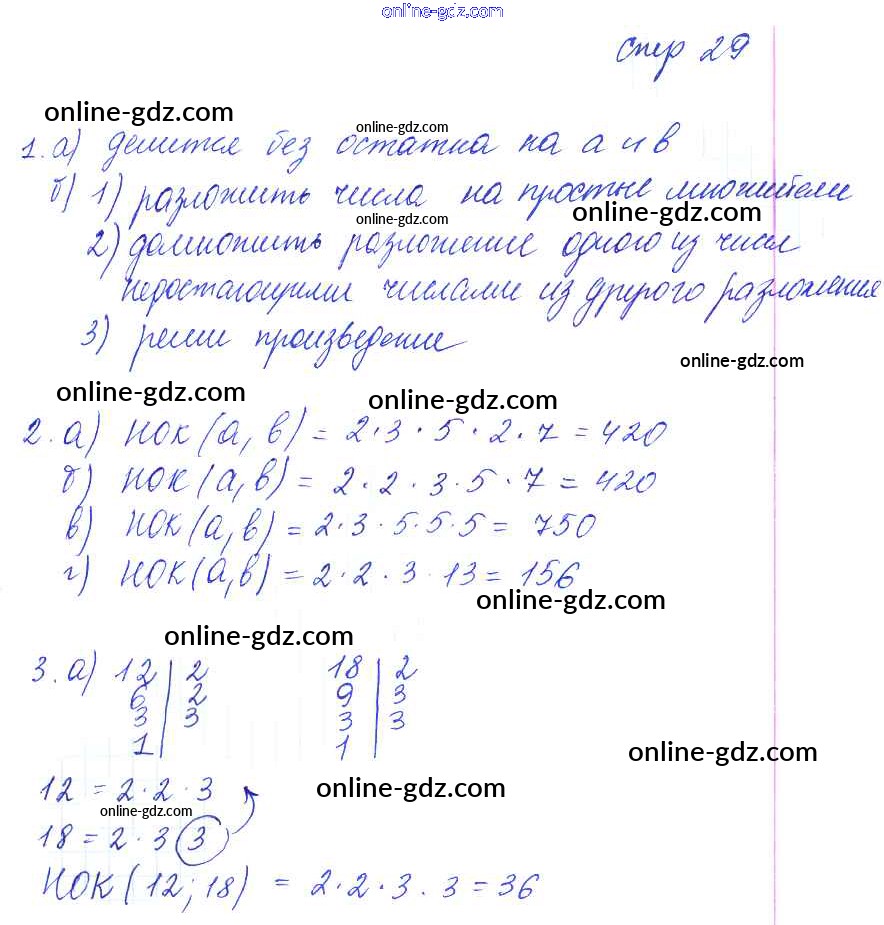 online-gdz.com
стр 29
online-gdz.com
online-gdz.com
1. а) делится без остатка на а и в
б) 1) разложить числа на простые множители
online-gdz.com
online-gdz.com
2) домножить разложение одного из чисел
недостающими числами из другого разложения
3) реши произведение
online-gdz.com
online-gdz.com
online-gdz.com
2. а) НОК (а, в) = 2·3·5·2·7 = 420
б) НОК (а, в) = 2·2·3·5·7 = 420
в) НОК (а, в) = 2·3·5·5·5 = 750
г) НОК (а, в) = 2·2·3·13 = 156
online-gdz.com
online-gdz.com
3. а) 12 | 2 18 | 2
6 | 2 9 | 3
3 | 3 3 | 3
1 | 1 |
online-gdz.com
12 = 2·2·3
online-gdz.com
online-gdz.com
18 = 2·3 3
НОК (12; 18) = 2·2·3·3 = 36